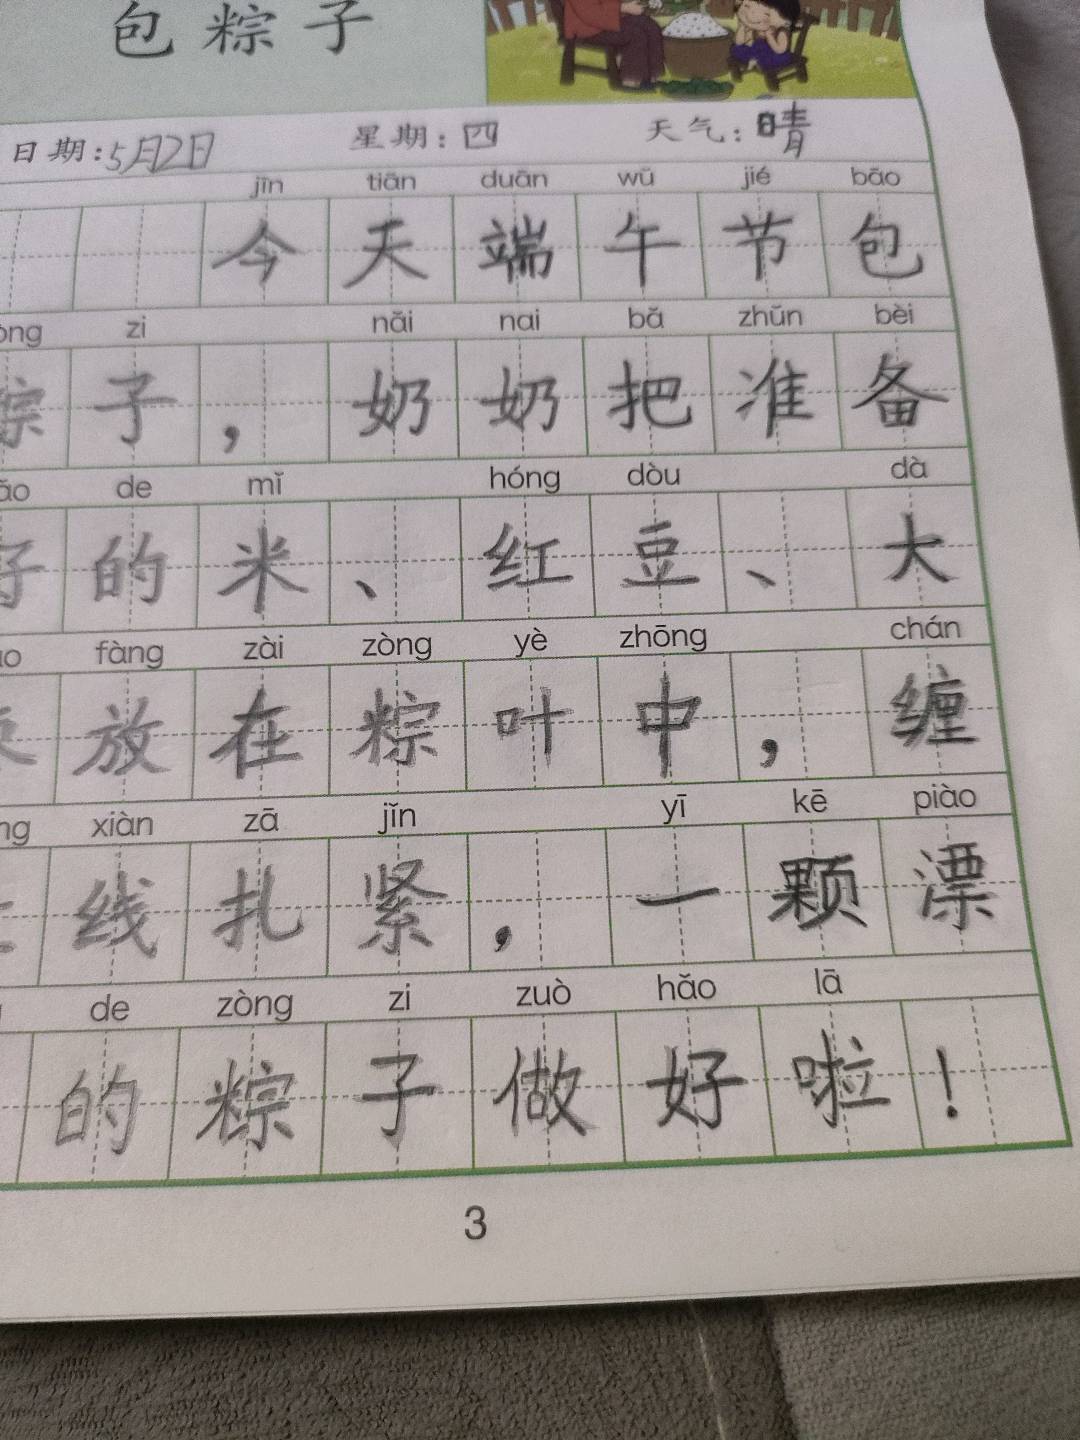 包粽子
日期:5月2日 星期:四 天气:晴
jīn tiān duān wǔ jié bāo
今天端午节包
zi nǎi nai bǎ zhǔn bèi
粽子,奶奶把准备
de mǐ hóng dòu dà
好的米、红豆、大
fàng zài zòng yè zhōng chán
放在粽叶中,缠
xiàn zā jǐn yī kē piào
线扎紧,一颗漂
de zòng zi zuò hǎo lā
的粽子做好啦!
3